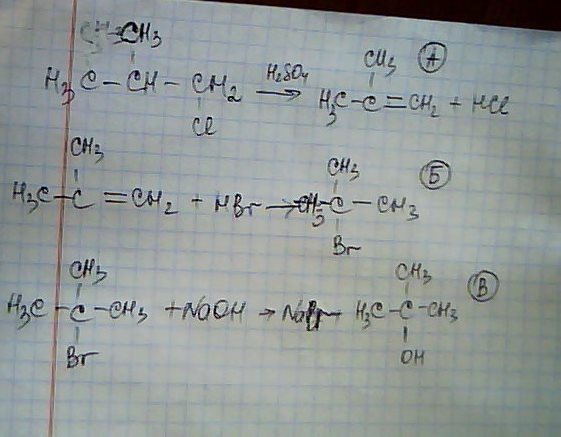 CH3
H3C – CH – CH2 –H2SO4→ H3C – C = CH2 + HCl
Cl
CH3
А
CH3
H3C – C = CH2 + HBr → CH3 – C – CH3
CH3
Br
Б
CH3
H3C – C – CH3 + NaOH → NaBr + H3C – C – CH3
Br
CH3
OH
В